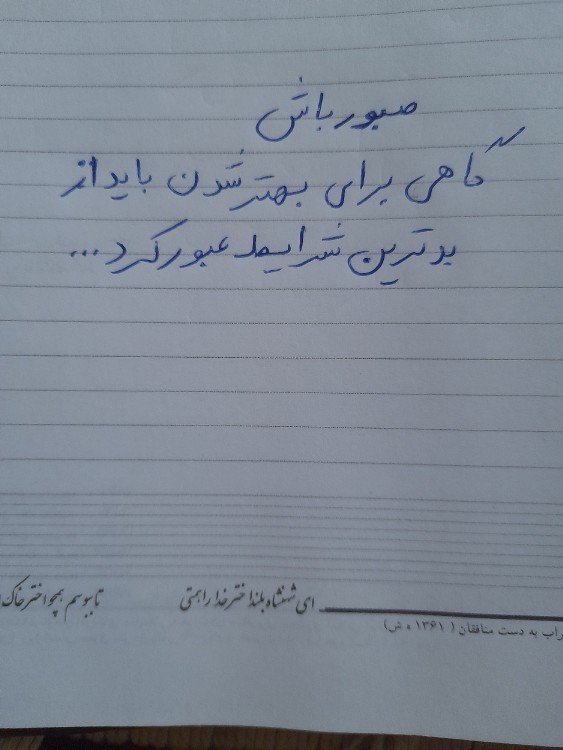 صبور باش
گاهی برای بهتر شدن باید از
بدترین شرایط عبور کرد...
ای شهنشاه بلند اختر خدا را همتی
تا ببوسم همچو اختر خاک
به دست منافقان (۱۳۶۱ ه ش)